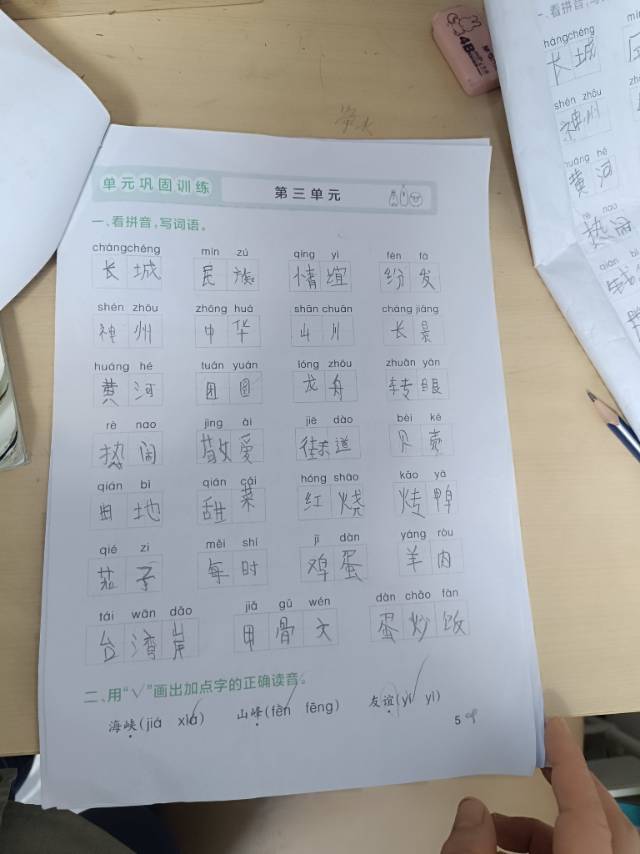 单元巩固训练 第三单元
一、看拼音,写词语。
chángchéng mín zú qíng yì fēn fā
长城 民族 情谊 纷发
shén zhōu zhōng huá shān chuān cháng jiāng
神州 中华 山川 长
huáng hé tuán yuán lóng zhōu zhuǎn yǎn
黄河 团圆 龙舟 转
rè nao jìng ài jiē dào bèi ké
热闹 敬爱 街道 贝壳
qián bì qián cài hóng shāo kǎo yā
地 甜菜 红烧 烤鸭
qié zi měi shí jī dàn yáng ròu
茄子 每时 鸡蛋 羊肉
tái wān dǎo jiǎ gǔ wén dàn chǎo fàn
台湾岸 甲骨文 蛋炒饭
二、用“√”画出加点字的正确读音。
海峡(jiá xiá) 山峰(fēn fēng) 友谊(yì yí)
5
一、看拼音,写
hángchéng
长城
shén zhōu
神州
huáng hé
黄河
nao
热闹
qián bì